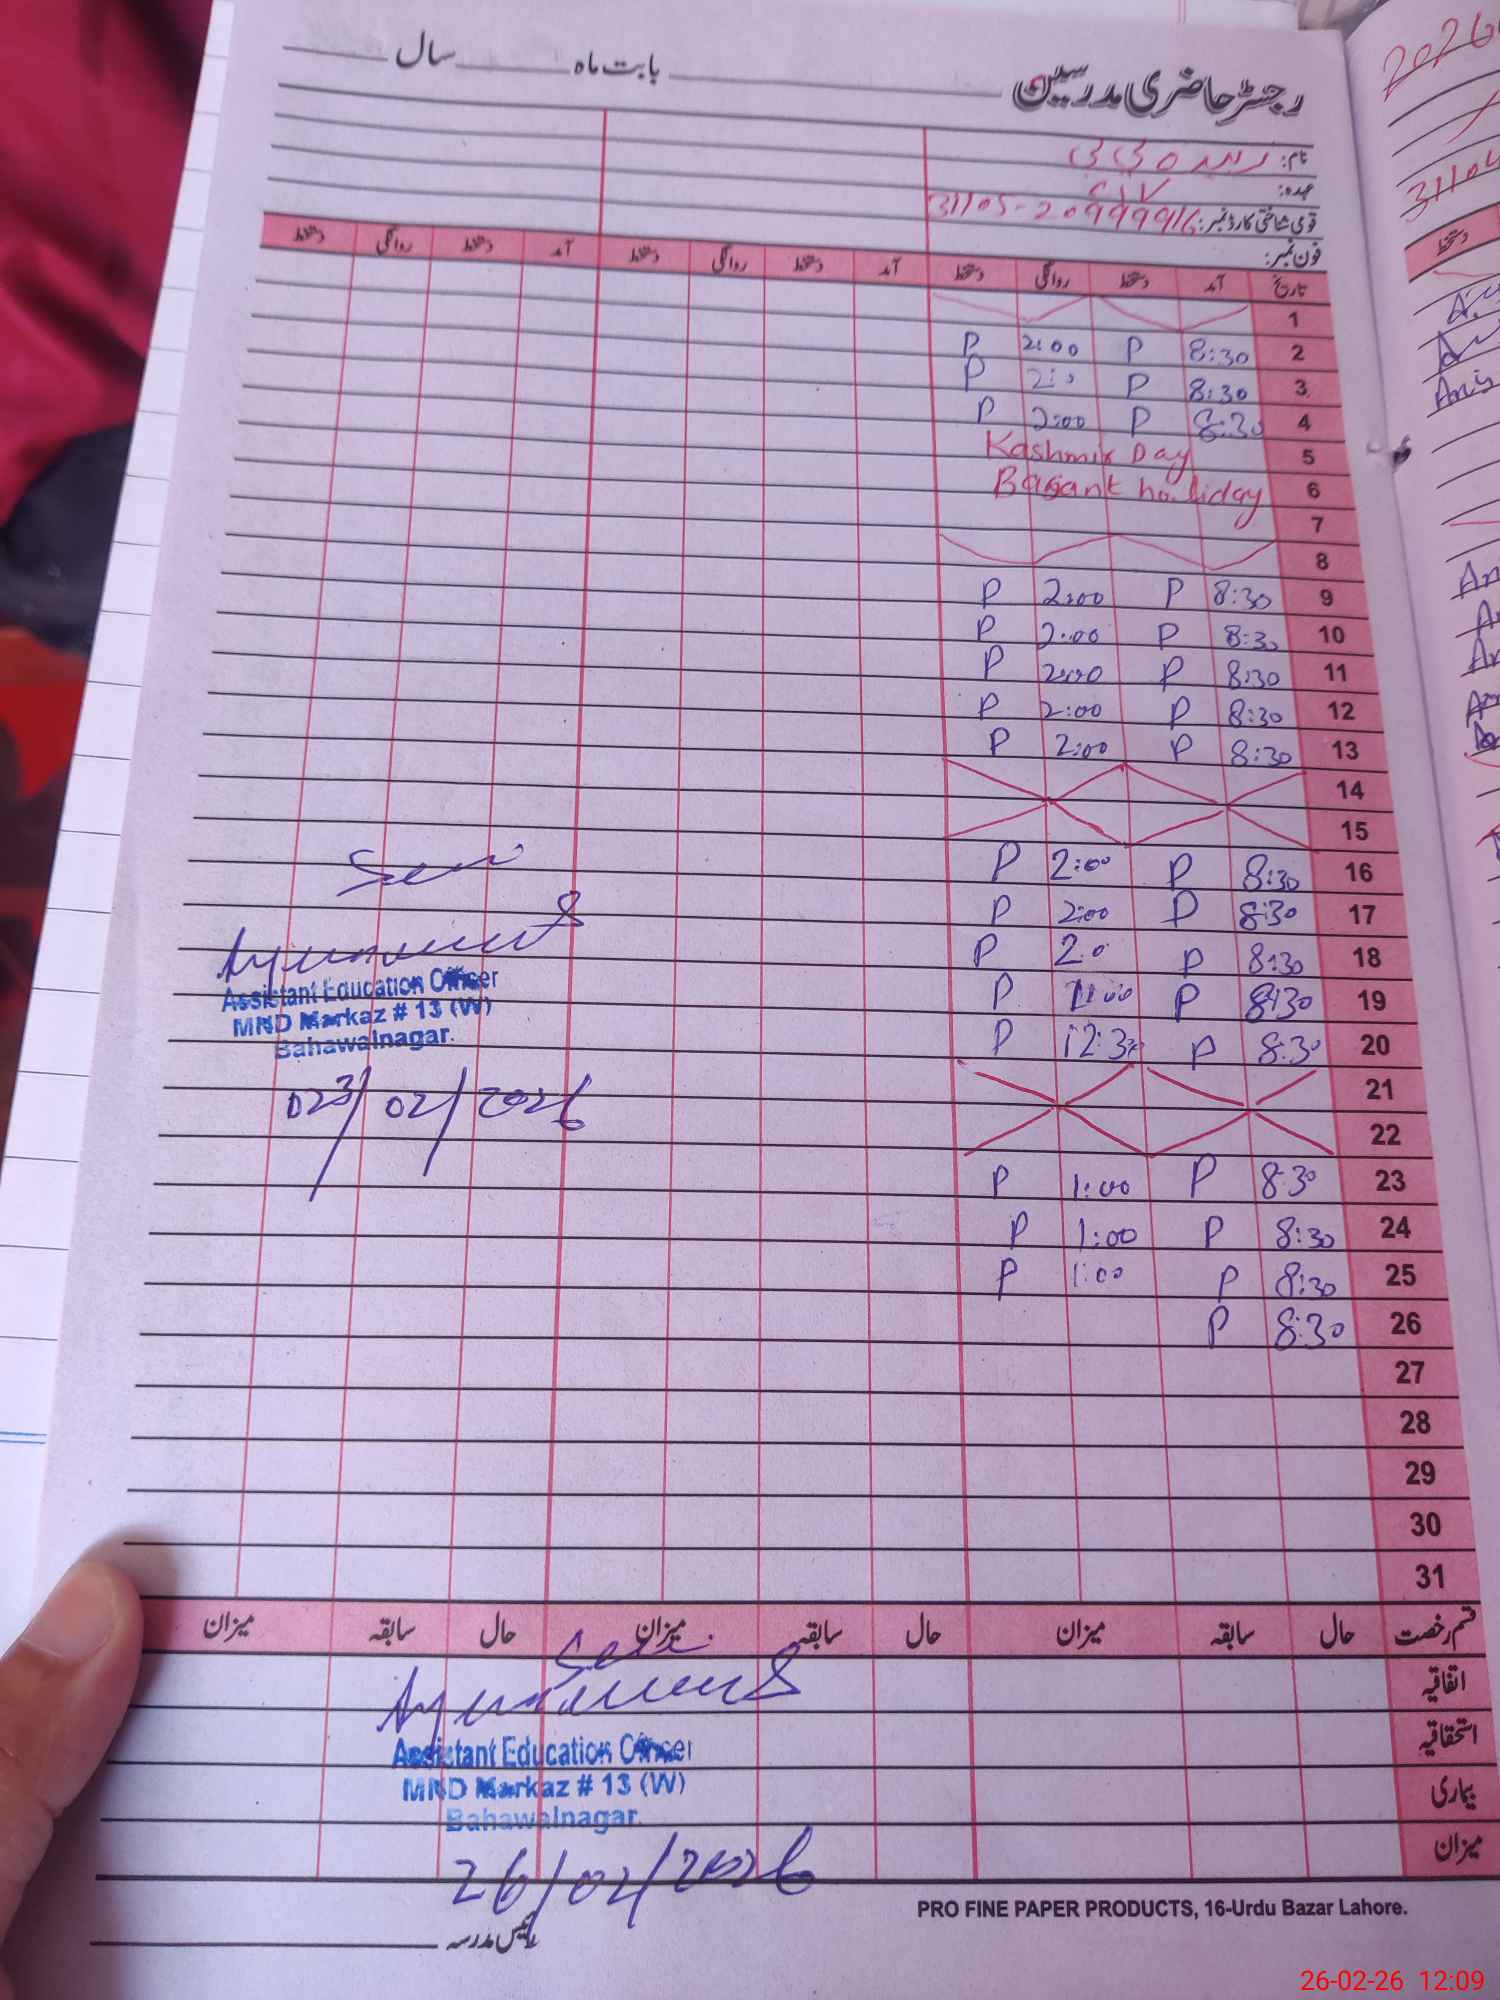 رجسٹر حاضری مدرسین بابت ماہ سال
نام:
عہدہ:
قومی شناختی کارڈ نمبر: 31105-20999916
فون نمبر:
تاریخ آمد دستخط روانگی دستخط آمد دستخط روانگی دستخط آمد دستخط روانگی دستخط
1
2 8:30 P 2:00 P
3 8:30 P 2:0 P
4 8:30 P 2:00 P
5 Kashmir Day
6 Basant holiday
7
8
9 8:30 P 2:00 P
10 8:30 P 2:00 P
11 8:30 P 2:00 P
12 8:30 P 2:00 P
13 8:30 P 2:00 P
14
15
16 8:30 P 2:00 P
17 8:30 P 2:00 P
18 8:30 P 2:0 P
19 8:30 P P
20 8:30 P 12:30 P
21
22
23 8:30 P 1:00 P
24 8:30 P 1:00 P
25 8:30 P 1:00 P
26 8:30 P
27
28
29
30
31
Seen
Assistant Education Officer
MND Markaz # 13 (W)
Bahawalnagar.
02/2026
قسم رخصت حال سابقہ میزان حال سابقہ میزان حال سابقہ میزان
اتفاقیہ
استحقاقیہ
بیماری
میزان
Seen
Assistant Education Officer
MND Markaz # 13 (W)
Bahawalnagar.
26/02/2026
رئیس مدرسہ
PRO FINE PAPER PRODUCTS, 16-Urdu Bazar Lahore.
2026
31104
دستخط
26-02-26 12:09